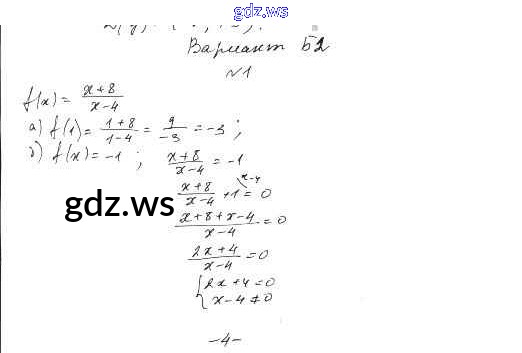 gdz.ws
Вариант Б2
№1
f(x) = \frac{x+8}{x-4}
а) f(1) = \frac{1+8}{1-4} = \frac{9}{-3} = -3 ;
б) f(x) = -1 ; \frac{x+8}{x-4} = -1
\frac{x+8}{x-4} + 1 = 0
x-4
gdz.ws
\frac{x+8+x-4}{x-4} = 0
\frac{2x+4}{x-4} = 0
{ 2x+4=0
x-4≠0
-4-